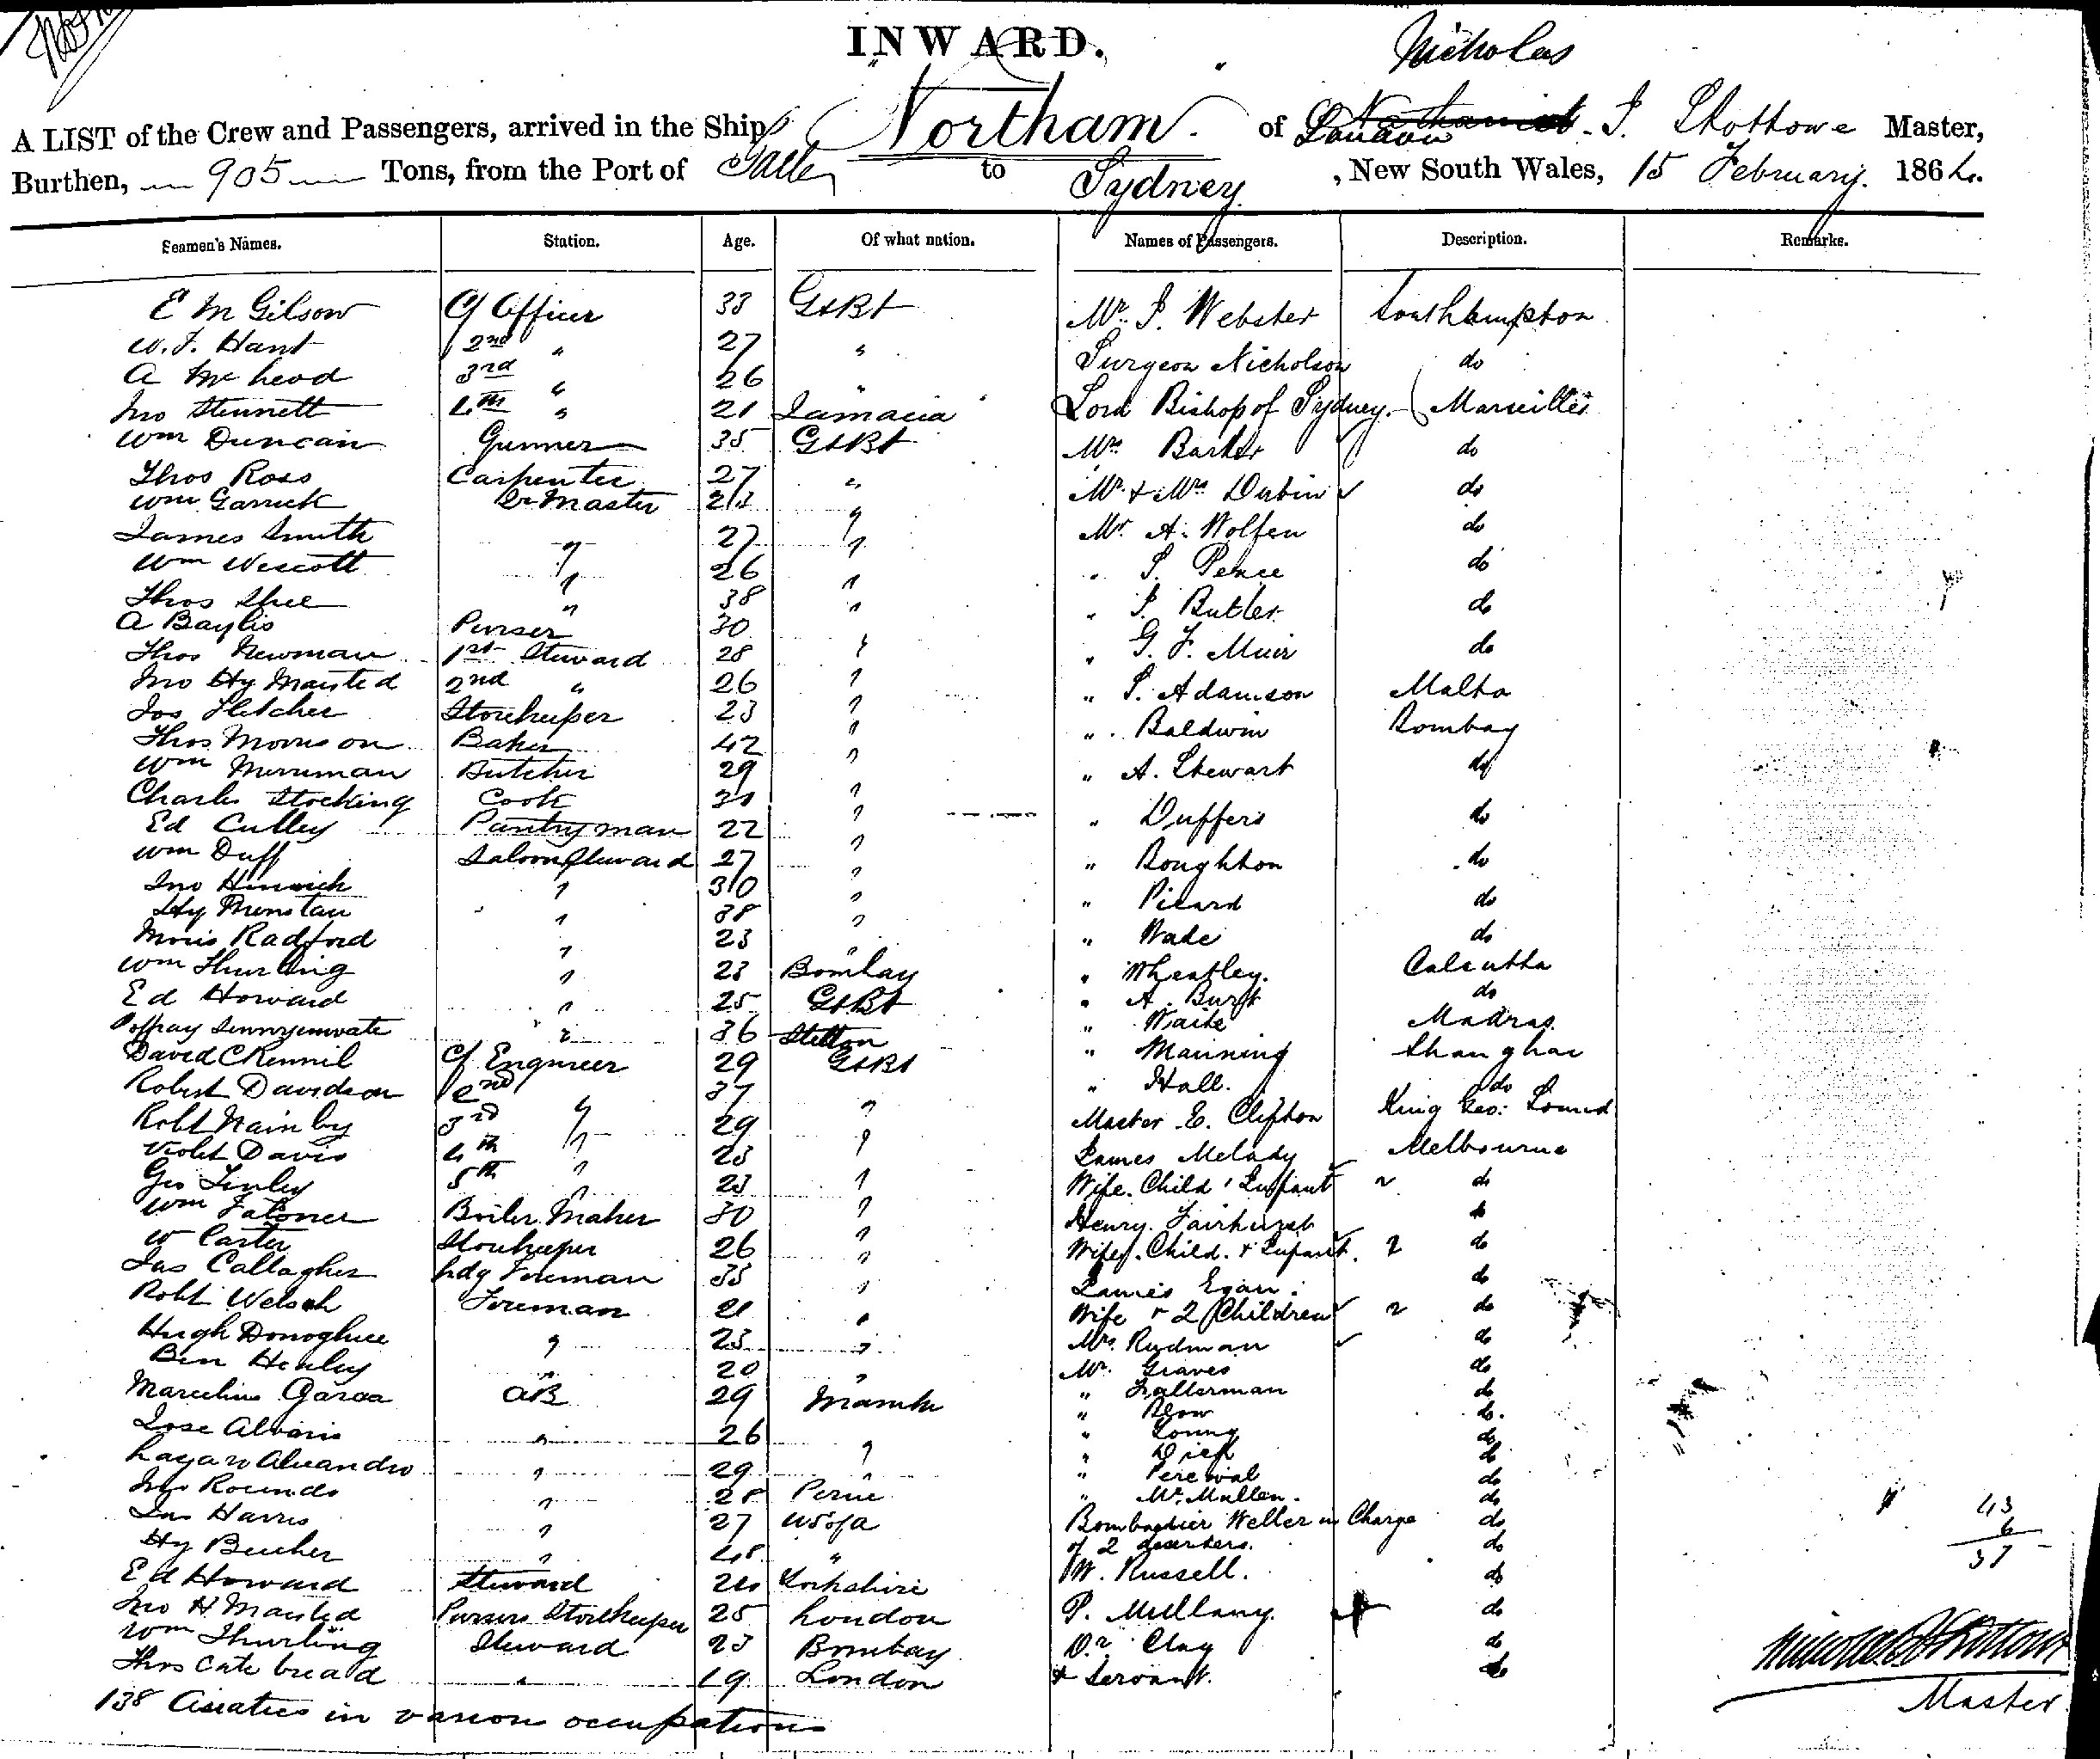 INWARD.
Nicholas
A LIST of the Crew and Passengers, arrived in the Ship Northam of London J. Skottowe Master,
Burthen, 905 Tons, from the Port of Galle to Sydney, New South Wales, 15 February 1864.
Seamen's Names. Station. Age. Of what nation. Names of Passengers. Description. Remarks.
E M Gilson Cf Officer 33 Gt Bt Mr. J. Webster Southampton
W. J. Hant 2nd " 27 " Surgeon Nicholson do
A head 3rd " 26 " Lord Bishop of Sydney Marseilles
Jno Stennett 4th " 21 Jamacia
Wm Duncan Gunner 35 Gt Bt Mrs Barker do
Thos Ross Carpenter 27 " Mr. & Mrs Dubin do
Wm Garrick Qr Master "
James Smith " 27 " Mr. A. Wolfen do
Wm Wescott " 26 " " J. Pence do
Thos Shee " 38 " " J. Butler do
A Baylis Purser 30 "
Thos Newman 1st Steward 28 " " G. F. Muir do
Jno Hy Mansted 2nd " 26 " " J. Adamson Malta
Jos Fletcher Storekeeper 23 " " Baldwin Bombay
Thos Morrison Baker 42 "
Wm Merriman Butcher 29 " " A. Stewart do
Charles Stocking Cook "
Ed Culley Pantryman 22 " " Duffers do
Wm Duff Saloon Steward 27 " " Boughton do
Jno " 30 " " Picard do
Hy " 38 "
Morris Radford " 23 " " Wade do
Wm Thurling " 23 Bombay " Wheatley. Calcutta
Ed Howard " 25 Gt Bt " A. Burt do
" 36 " Waite Madras
David C Rennil Cf. Engineer 29 Gt Bt " Manning Shanghai
Robert Davidson 2nd " 37 " " Hall. do
Robt Nainby 3rd " 29 " Master E. Clifton King Geo: Sound
Violet Davis 4th " 23 " James Melady Melbourne
Geo Linley 5th " 23 " Wife. Child & Infant 2 do
Wm Boiler Maker 30 " Henry. Fairhurst do
W Carter Storekeeper 26 " Wife. Child. & Infant. 2 do
Jas Callagher Ldg Fireman 33 " James Egan. do
Robt Welsh Fireman 21 " Wife & 2 Children 2 do
Hugh Donoghue " 23 " Mrs. Rudman do
Ben Henley " 20 " Mr. Graves do
Marcelino Garcia AB 29 " do
" do
Jose " 26 " Young do
" do
" 29 " " Percival do
Jno Rounds " 28 " McMullen. do
Jas Harris " 27 Bombardier Weller in Charge do
Hy Beecher " 48 " of 2 do
Ed Howard Steward Yorkshire W. Russell. do
Jno H Mansted Pursers Storekeeper 25 London P. Mullany. do
Wm Thurling Steward 23 Bombay Dr. Clay do
Thos Cutebread " 19 London & Servant. do
138 Asiatics in various occupations
43
6
37
Master